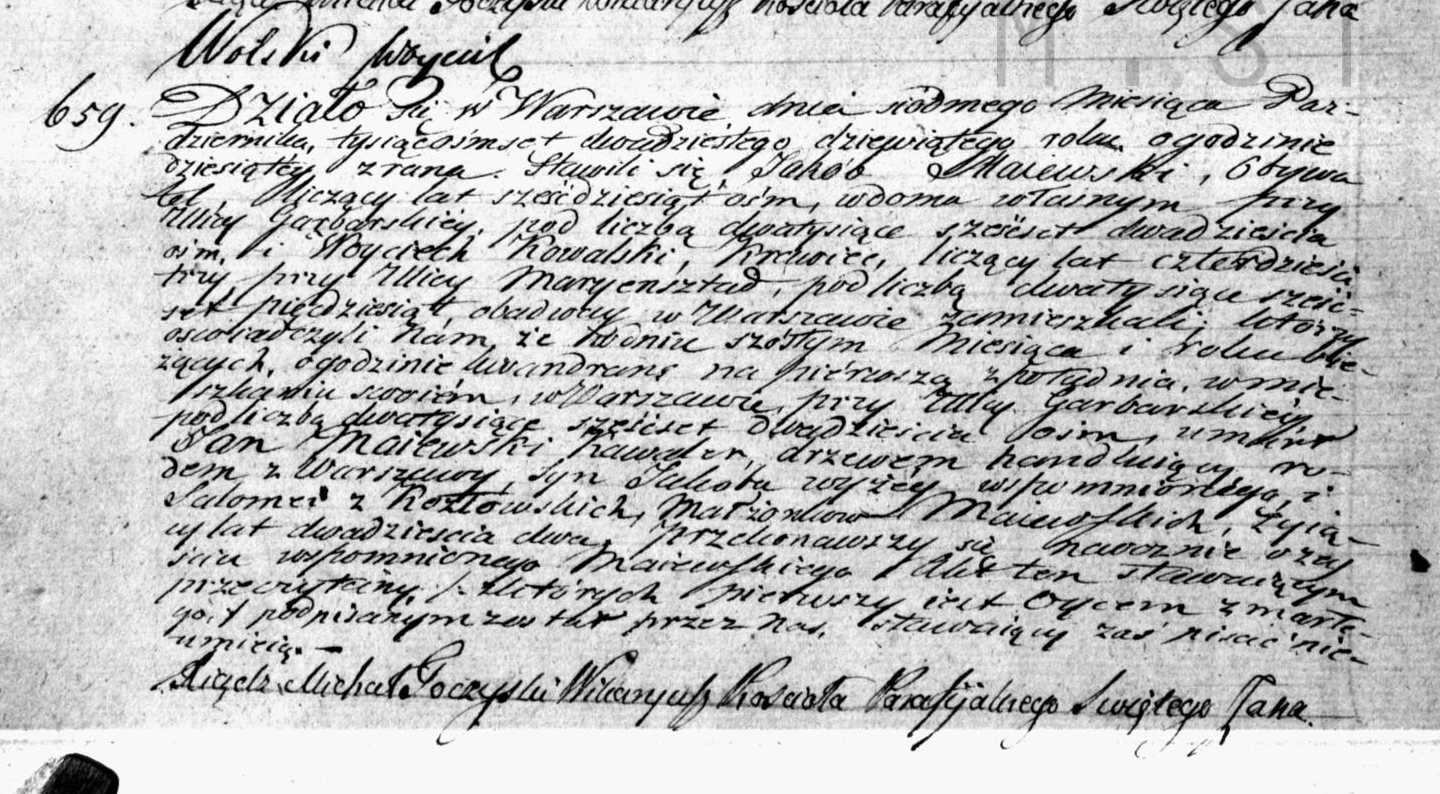 Michał Poczyski Wikaryusz Kościoła Parafijalnego Świętego Jana
Wolski
659. Działo się w Warszawie dnia siódmego Miesiąca Paz-
dziernika, tysiącośmset dwadziestego dziewiątego roku o godzinie
dziesiątey zrana. Stawili się Jakób Maiewski, Obywa
tel, liczący lat sześćdziesiąt ośm, w domu własnym przy
Ulicy Garbarskiey, pod liczbą dwatysiące sześćset dwadzieścia
ośm, i Woyciech Kowalski, Krawiec, liczący lat czterdzieści
trzy przy Ulicy Maryensztad, pod liczbą dwatysiące sześć-
set pięćdziesiąt, obadway w Warszawie zamieszkali; którzy
oświadczyli Nam, że w dniu szóstym Miesiąca i roku bie-
żących, o godzinie na pierwszą z południa, w mie-
szkaniu swoiem, w Warszawie, przy Ulicy Garbarskiey
pod liczbą dwatysiące sześćset dwadzieścia ośm, umarł
Jan Maiewski Kawaler, drzewem handluiący, ro-
dem z Warszawy, syn Jakóba wyżey wspomnionego, i
Salomei z Kozłowskich, Małżonków Maiewskich, żyią-
cy lat dwadzieścia dwa. Przekonawszy się naocznie o zey
ściu wspomnionego Maiewskiego Akt ten stawaiącym
przeczytany /: z których pierwszy iest Oycem zmarłe-
go :/ podpisanym został przez Nas, stawaiący zaś pisać nie-
umieią. —
Xiądz Michał Poczyski Wikaryusz Kościoła Parafijalnego Świętego Jana.